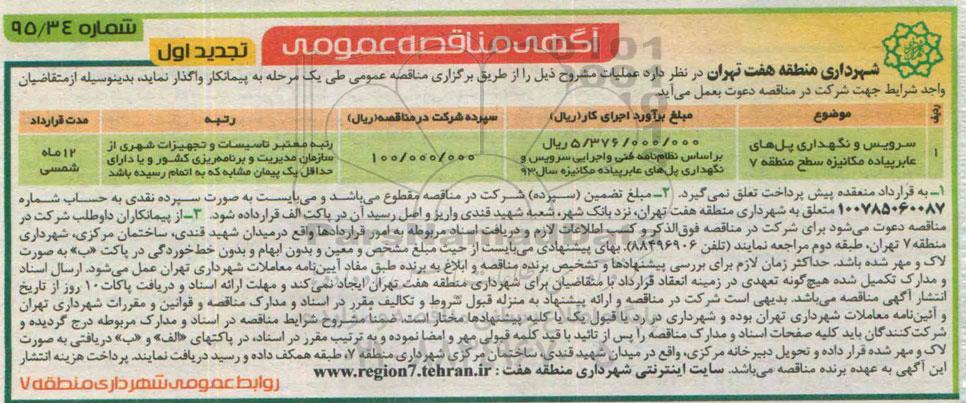 شماره ۹۵/۳۴
آگهی مناقصه عمومی
تجدید اول
شهرداری منطقه هفت تهران در نظر دارد عملیات مشروح ذیل را از طریق برگزاری مناقصه عمومی طی یک مرحله به پیمانکار واگذار نماید، بدینوسیله ازمتقاضیان
واجد شرایط جهت شرکت در مناقصه دعوت بعمل می‌آید.
ردیف موضوع مبلغ برآورد اجرای کار (ریال) سپرده شرکت در مناقصه (ریال) رتبه مدت قرارداد
۱ سرویس و نگهداری پل‌های عابرپیاده مکانیزه سطح منطقه ۷
۵/۳۷۶/۰۰۰/۰۰۰ ریال
براساس نظام‌نامه فنی واجرایی سرویس و
نگهداری پل‌های عابرپیاده مکانیزه سال۹۳
۱۰۰/۰۰۰/۰۰۰
رتبه معتبر تاسیسات و تجهیزات شهری از
سازمان مدیریت و برنامه‌ریزی کشور و یا دارای
حداقل یک پیمان مشابه که به اتمام رسیده باشد
۱۲ ماه
شمسی
۱ـ به قرارداد منعقده پیش پرداخت تعلق نمی‌گیرد. ۲ـ مبلغ تضمین (سپرده) شرکت در مناقصه مقطوع می‌باشد و می‌بایست به صورت سپرده نقدی به حساب شماره
۱۰۰۷۸۵۰۶۰۰۸۷ متعلق به شهرداری منطقه هفت تهران، نزد بانک شهر، شعبه شهید قندی واریز و اصل رسید آن در پاکت الف قرارداده شود. ۳ـ از پیمانکاران داوطلب شرکت در
مناقصه دعوت می‌شود برای شرکت در مناقصه فوق‌الذکر و کسب اطلاعات لازم و دریافت اسناد مربوطه به امور قراردادها واقع درمیدان شهید قندی، ساختمان مرکزی، شهرداری
منطقه ۷ تهران، طبقه دوم مراجعه نمایند (تلفن ۸۸۴۹۶۹۰۶). بهای پیشنهادی می‌بایست از حیث مبلغ مشخص و معین و بدون ابهام و بدون خط‌خوردگی در پاکت «ب» به صورت
لاک و مهر شده باشد. حداکثر زمان لازم برای بررسی پیشنهادها و تشخیص برنده مناقصه و ابلاغ به برنده طبق مفاد آیین‌نامه معاملات شهرداری تهران عمل می‌شود. ارسال اسناد
و مدارک تکمیل شده هیچ‌گونه تعهدی در زمینه انعقاد قرارداد با متقاضیان برای شهرداری منطقه هفت تهران ایجاد نمی‌کند و مهلت ارائه اسناد و دریافت پاکات ۱۰ روز از تاریخ
انتشار آگهی مناقصه می‌باشد. بدیهی است شرکت در مناقصه و ارائه پیشنهاد به منزله قبول شروط و تکالیف مقرر در اسناد و مدارک مناقصه و قوانین و مقررات شهرداری تهران
و آئین‌نامه معاملات شهرداری تهران بوده و شهرداری در رد یا قبول یک یا کلیه پیشنهادها مختار است. ضمنا مشروح شرایط مناقصه در اسناد و مدارک مربوطه درج گردیده و
شرکت‌کنندگان باید کلیه صفحات اسناد و مدارک مناقصه را پس از تائید با قید کلمه قبولی مهر و امضا نموده و به ترتیب مقرر در اسناد، در پاکتهای «الف» و «ب» دریافتی به صورت
لاک و مهر شده قرار داده و تحویل دبیرخانه مرکزی، واقع در میدان شهید قندی، ساختمان مرکزی شهرداری منطقه ۷، طبقه همکف داده و رسید دریافت نمایند. پرداخت هزینه انتشار
این آگهی به عهده برنده مناقصه می‌باشد. سایت اینترنتی شهرداری منطقه هفت : www.region7.tehran.ir
روابط عمومی شهرداری منطقه ۷